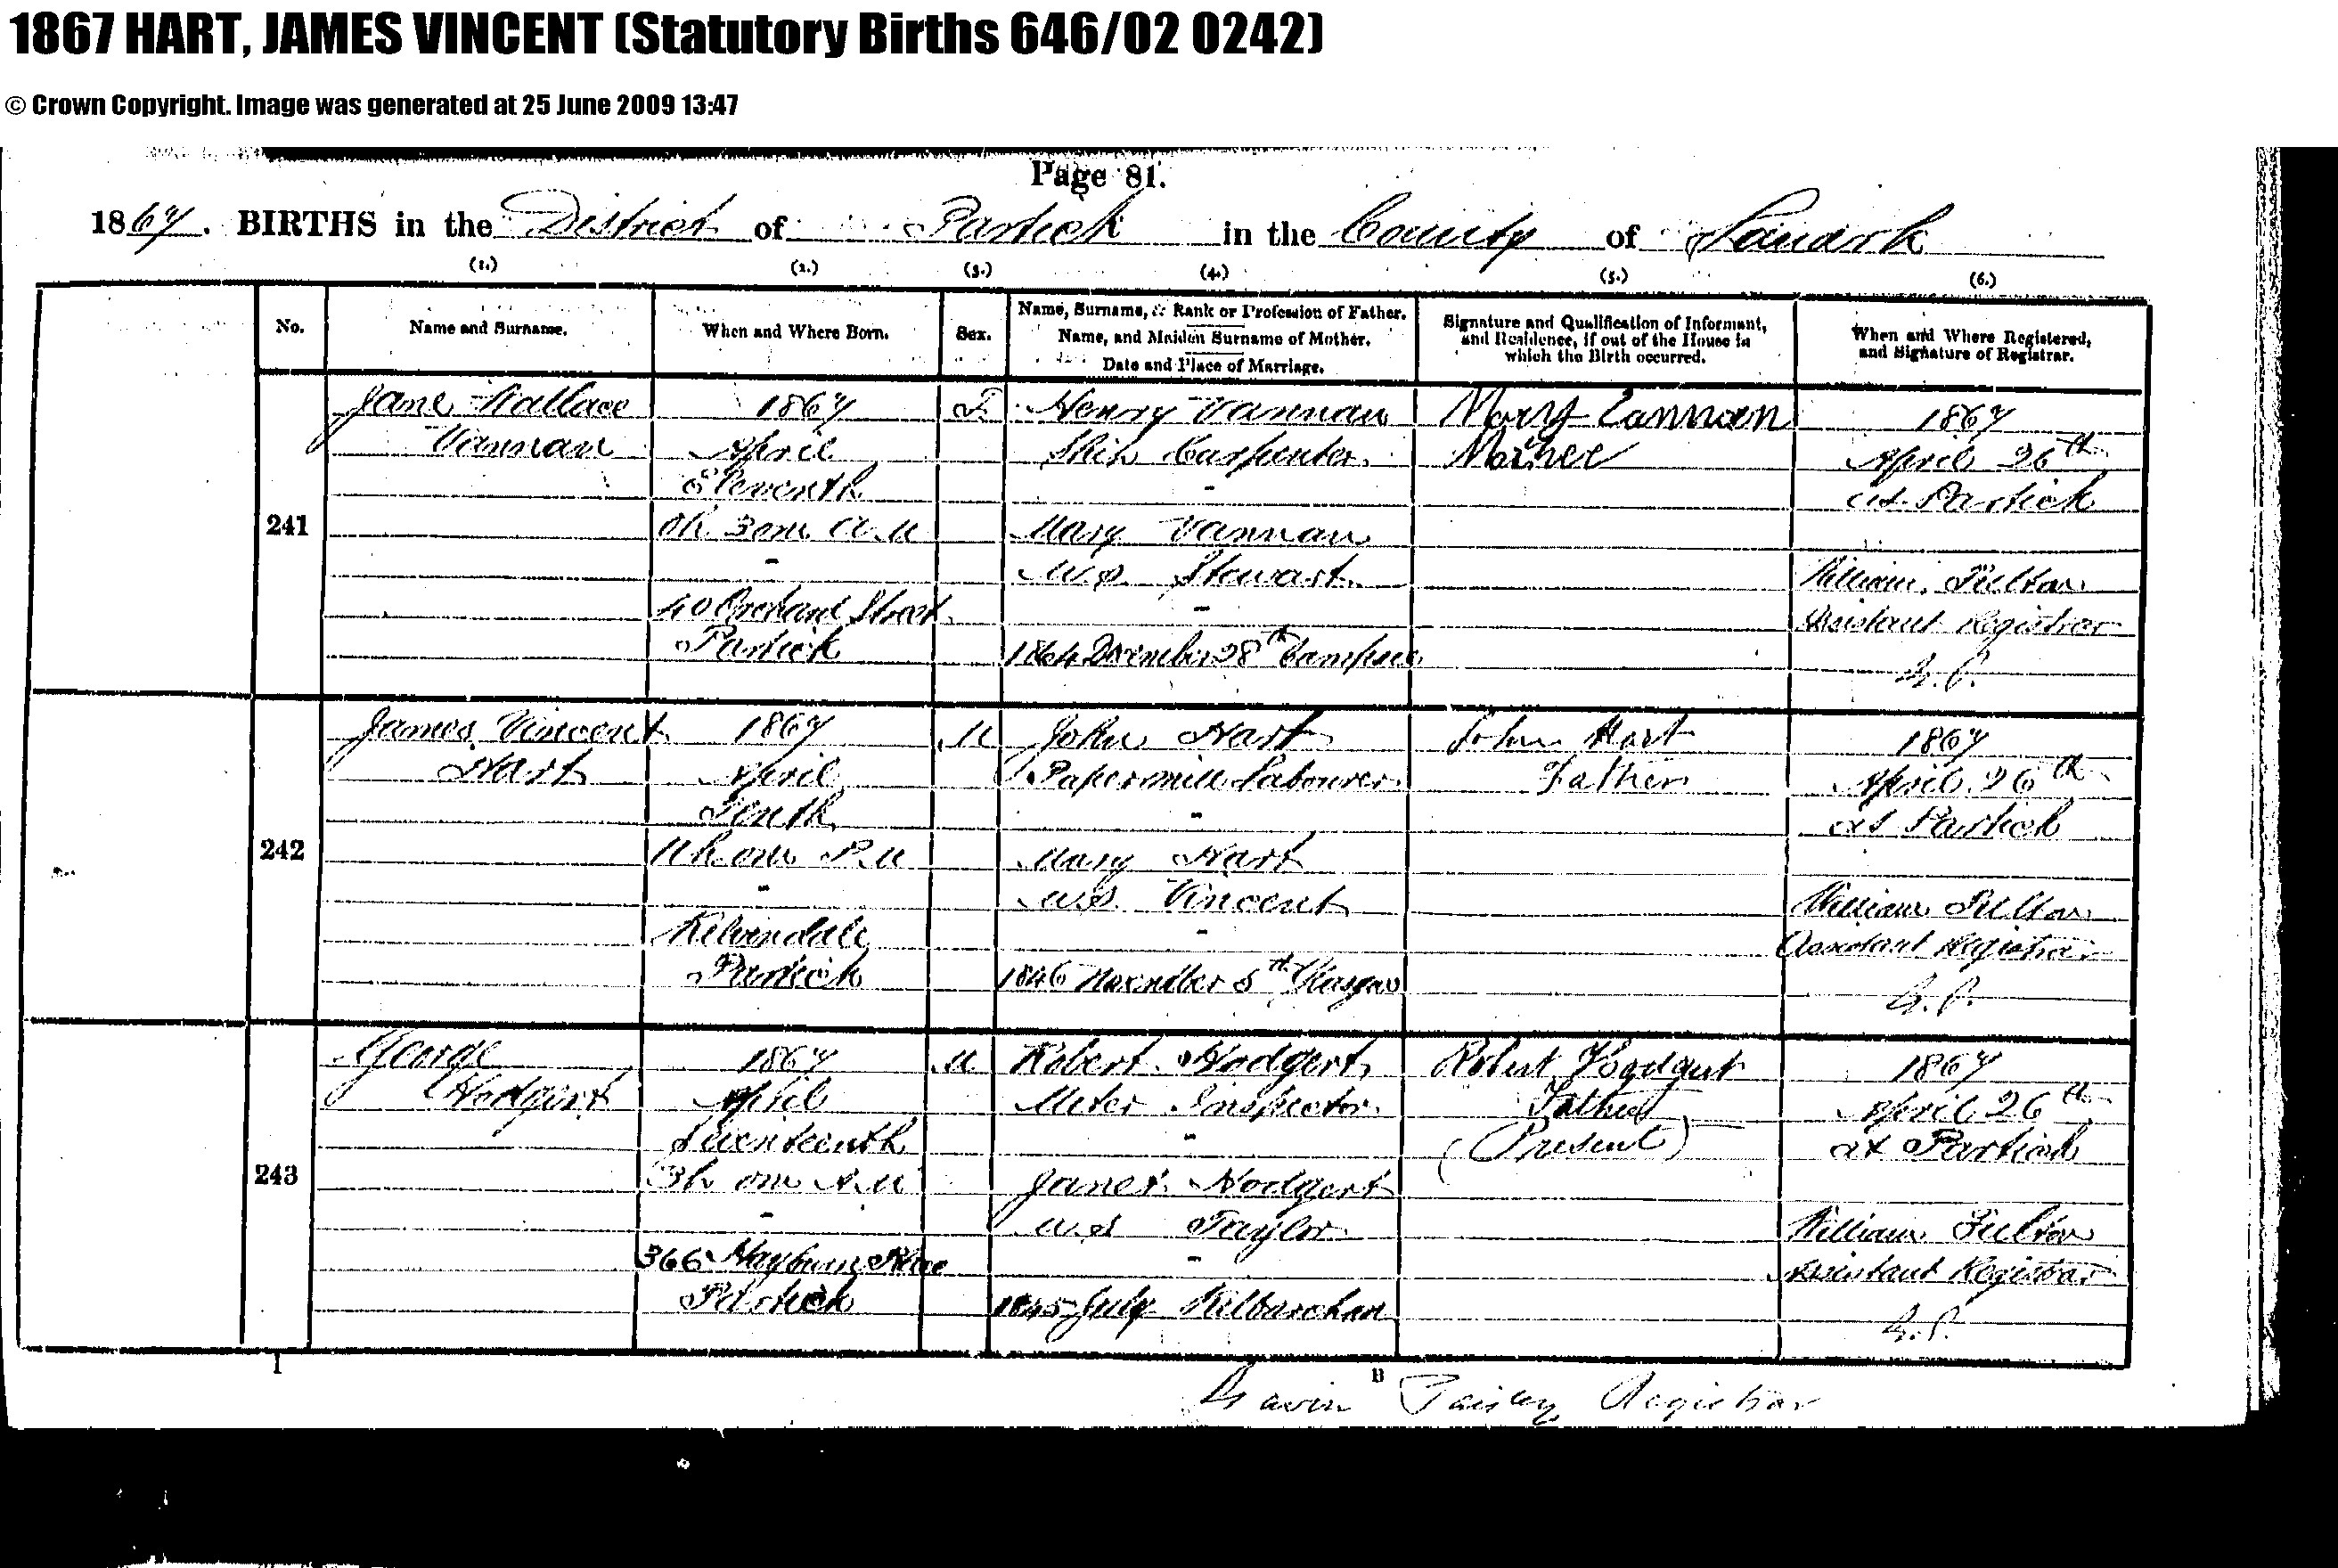 1867 HART, JAMES VINCENT (Statutory Births 646/02 0242)
© Crown Copyright. Image was generated at 25 June 2009 13:47
Page 81.
1867. BIRTHS in the District of Partick in the County of Lanark
(1.) (2.) (3.) (4.) (5.) (6.)
No.
Name and Surname.
When and Where Born.
Sex.
Name, Surname, & Rank or Profession of Father.
Name, and Maiden Surname of Mother.
Date and Place of Marriage.
Signature and Qualification of Informant,
and Residence, if out of the House in
which the Birth occurred.
When and Where Registered,
and Signature of Registrar.
241
Jane Wallace
Vannan
1867
April
Eleventh
0h. 30m. A.M
40 Orchard Street
Partick
F
Henry Vannan
Ship Carpenter
Mary Vannan
M.S. Stewart
1864 December 28th Campsie
Mary Vannan
Mother
1867
April 26th
at Partick
William Fulton
Assistant Registrar
G. P.
242
James Vincent
Hart
1867
April
Tenth
11h. 0m. P.M
Kelvindale
Partick
M
John Hart
Papermill Labourer
Mary Hart
M.S. Vincent
1846 November 5th Glasgow
John Hart
Father
1867
April 26th
at Partick
William Fulton
Assistant Registrar
G. P.
243
George
Hodgert
1867
April
3h. 0m. A.M
366
Partick
M
Robert Hodgert
Meter Inspector
Janet Hodgert
M.S. Taylor
1845 July Kilbarchan
Robert Hodgert
Father
(Present)
1867
April 26th
at Partick
William Fulton
Assistant Registrar
G. P.
I
B
Gavin Paisley Registrar